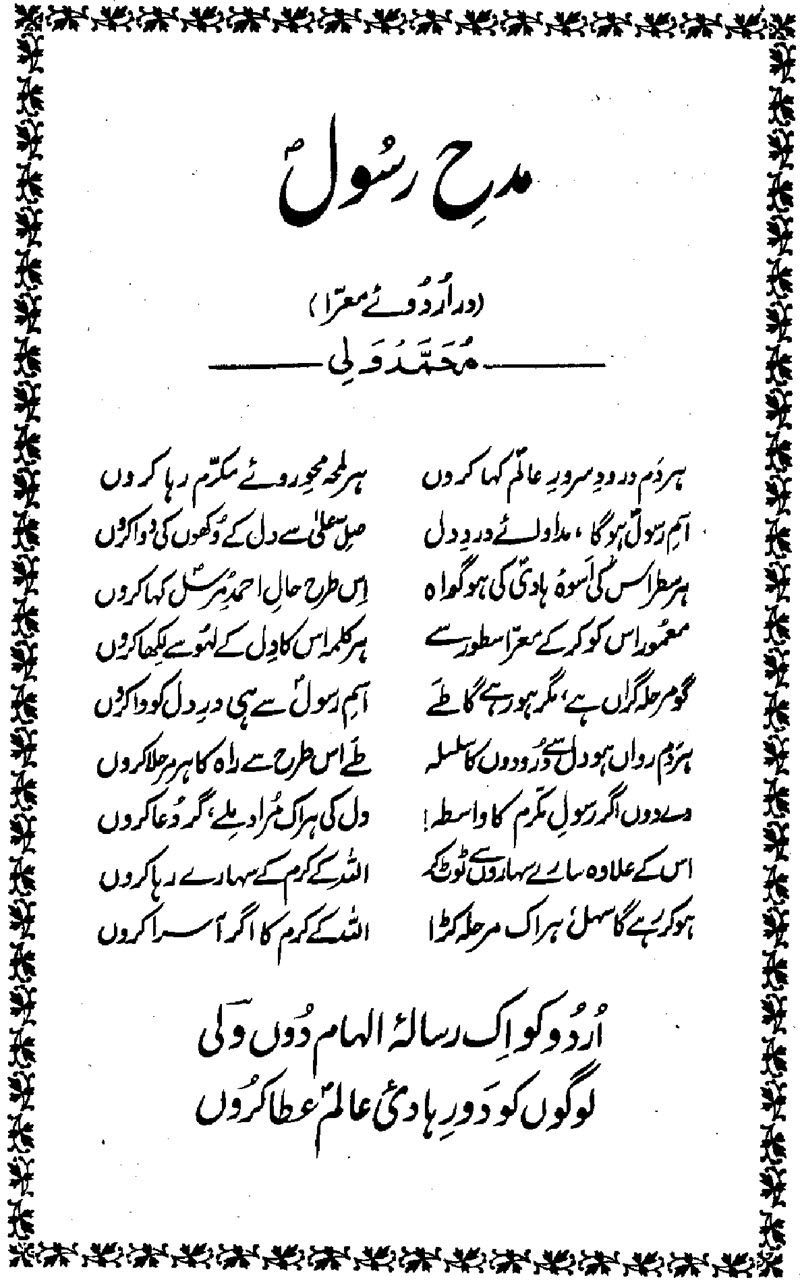 مدحِ رسُولؐ
(در اُردُوئے معرّا)
مُحَمَّدُ وَلِی
ہر دَم درودِ سرورِ عالمؐ کہا کروں ہر لمحہ محوِ روئے مکرّم رہا کروں
اسمِ رسولؐ ہوگا، مداوائے دردِ دل صلِّ علیٰ سے دل کے دُکھوں کی دوا کروں
ہر سطر اس کی اُسوۂ ہادیؐ کی ہو گواہ اِس طرح حالِ احمدِ مرسلؐ کہا کروں
معمُور اس کو کر کے معرّا سطور سے ہر کلمہ اس کا دِل کے لہُو سے لکھا کروں
گو مرحلہ گراں ہے، مگر ہو رہے گا طَے اسمِ رسولؐ سے ہی درِ دل کو وا کروں
ہر دَم رواں ہو دل سے دُرُودوں کا سلسلہ طَے اس طرح سے راہ کا ہر مرحلا کروں
دے دوں اگر رسولِ مکرّم کا واسطہ! دل کی ہر اک مُراد ملے، گر دُعا کروں
اس کے علاوہ سارے سہاروں سے ٹوٹ کر اللہ کے کرم کے سہارے رہا کروں
ہو کر رہے گا سہل ہر اک مرحلہ کڑا اللہ کے کرم کا اگر آسرا کروں
اُردُو کو اِک رسالۂ الہام دُوں ولی
لوگوں کو دَورِ ہادیٔ عالمؐ عطا کرُوں